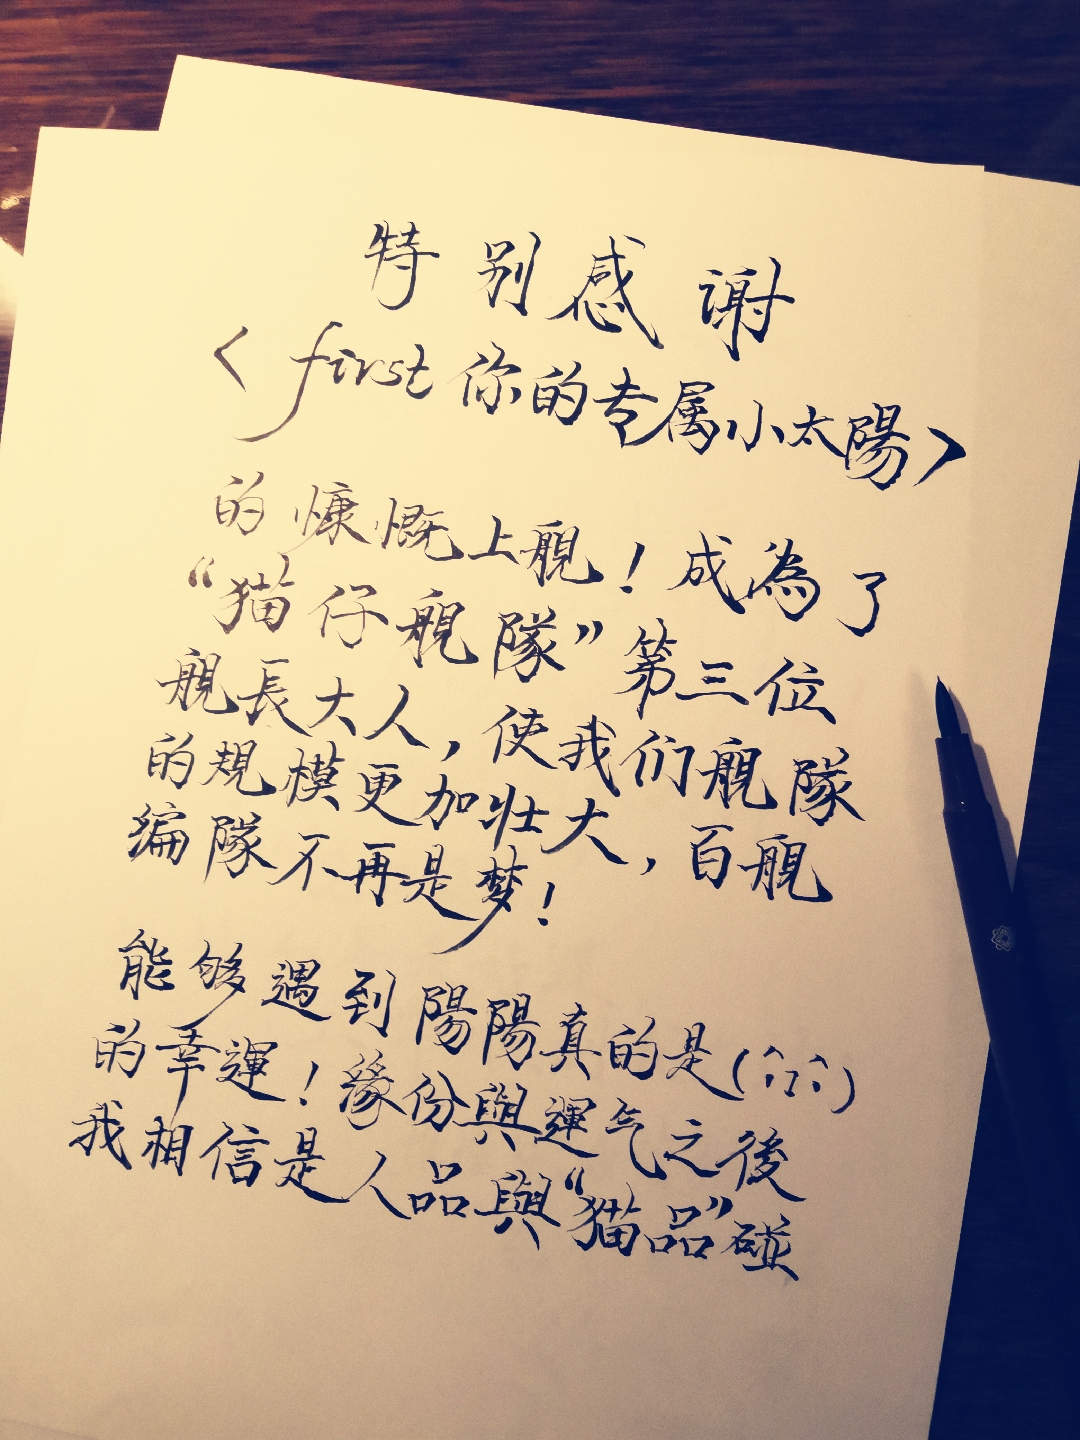 特别感谢
< first 你的专属小太陽 >
的慷慨上舰！成為了
“猫仔舰隊”第三位
舰長大人，使我们舰隊
的規模更加壮大，百舰
编隊不再是梦！
能够遇到陽陽真的是(^ㄛ^)
的幸運！緣份與運气之後
我相信是人品與“猫品”碰